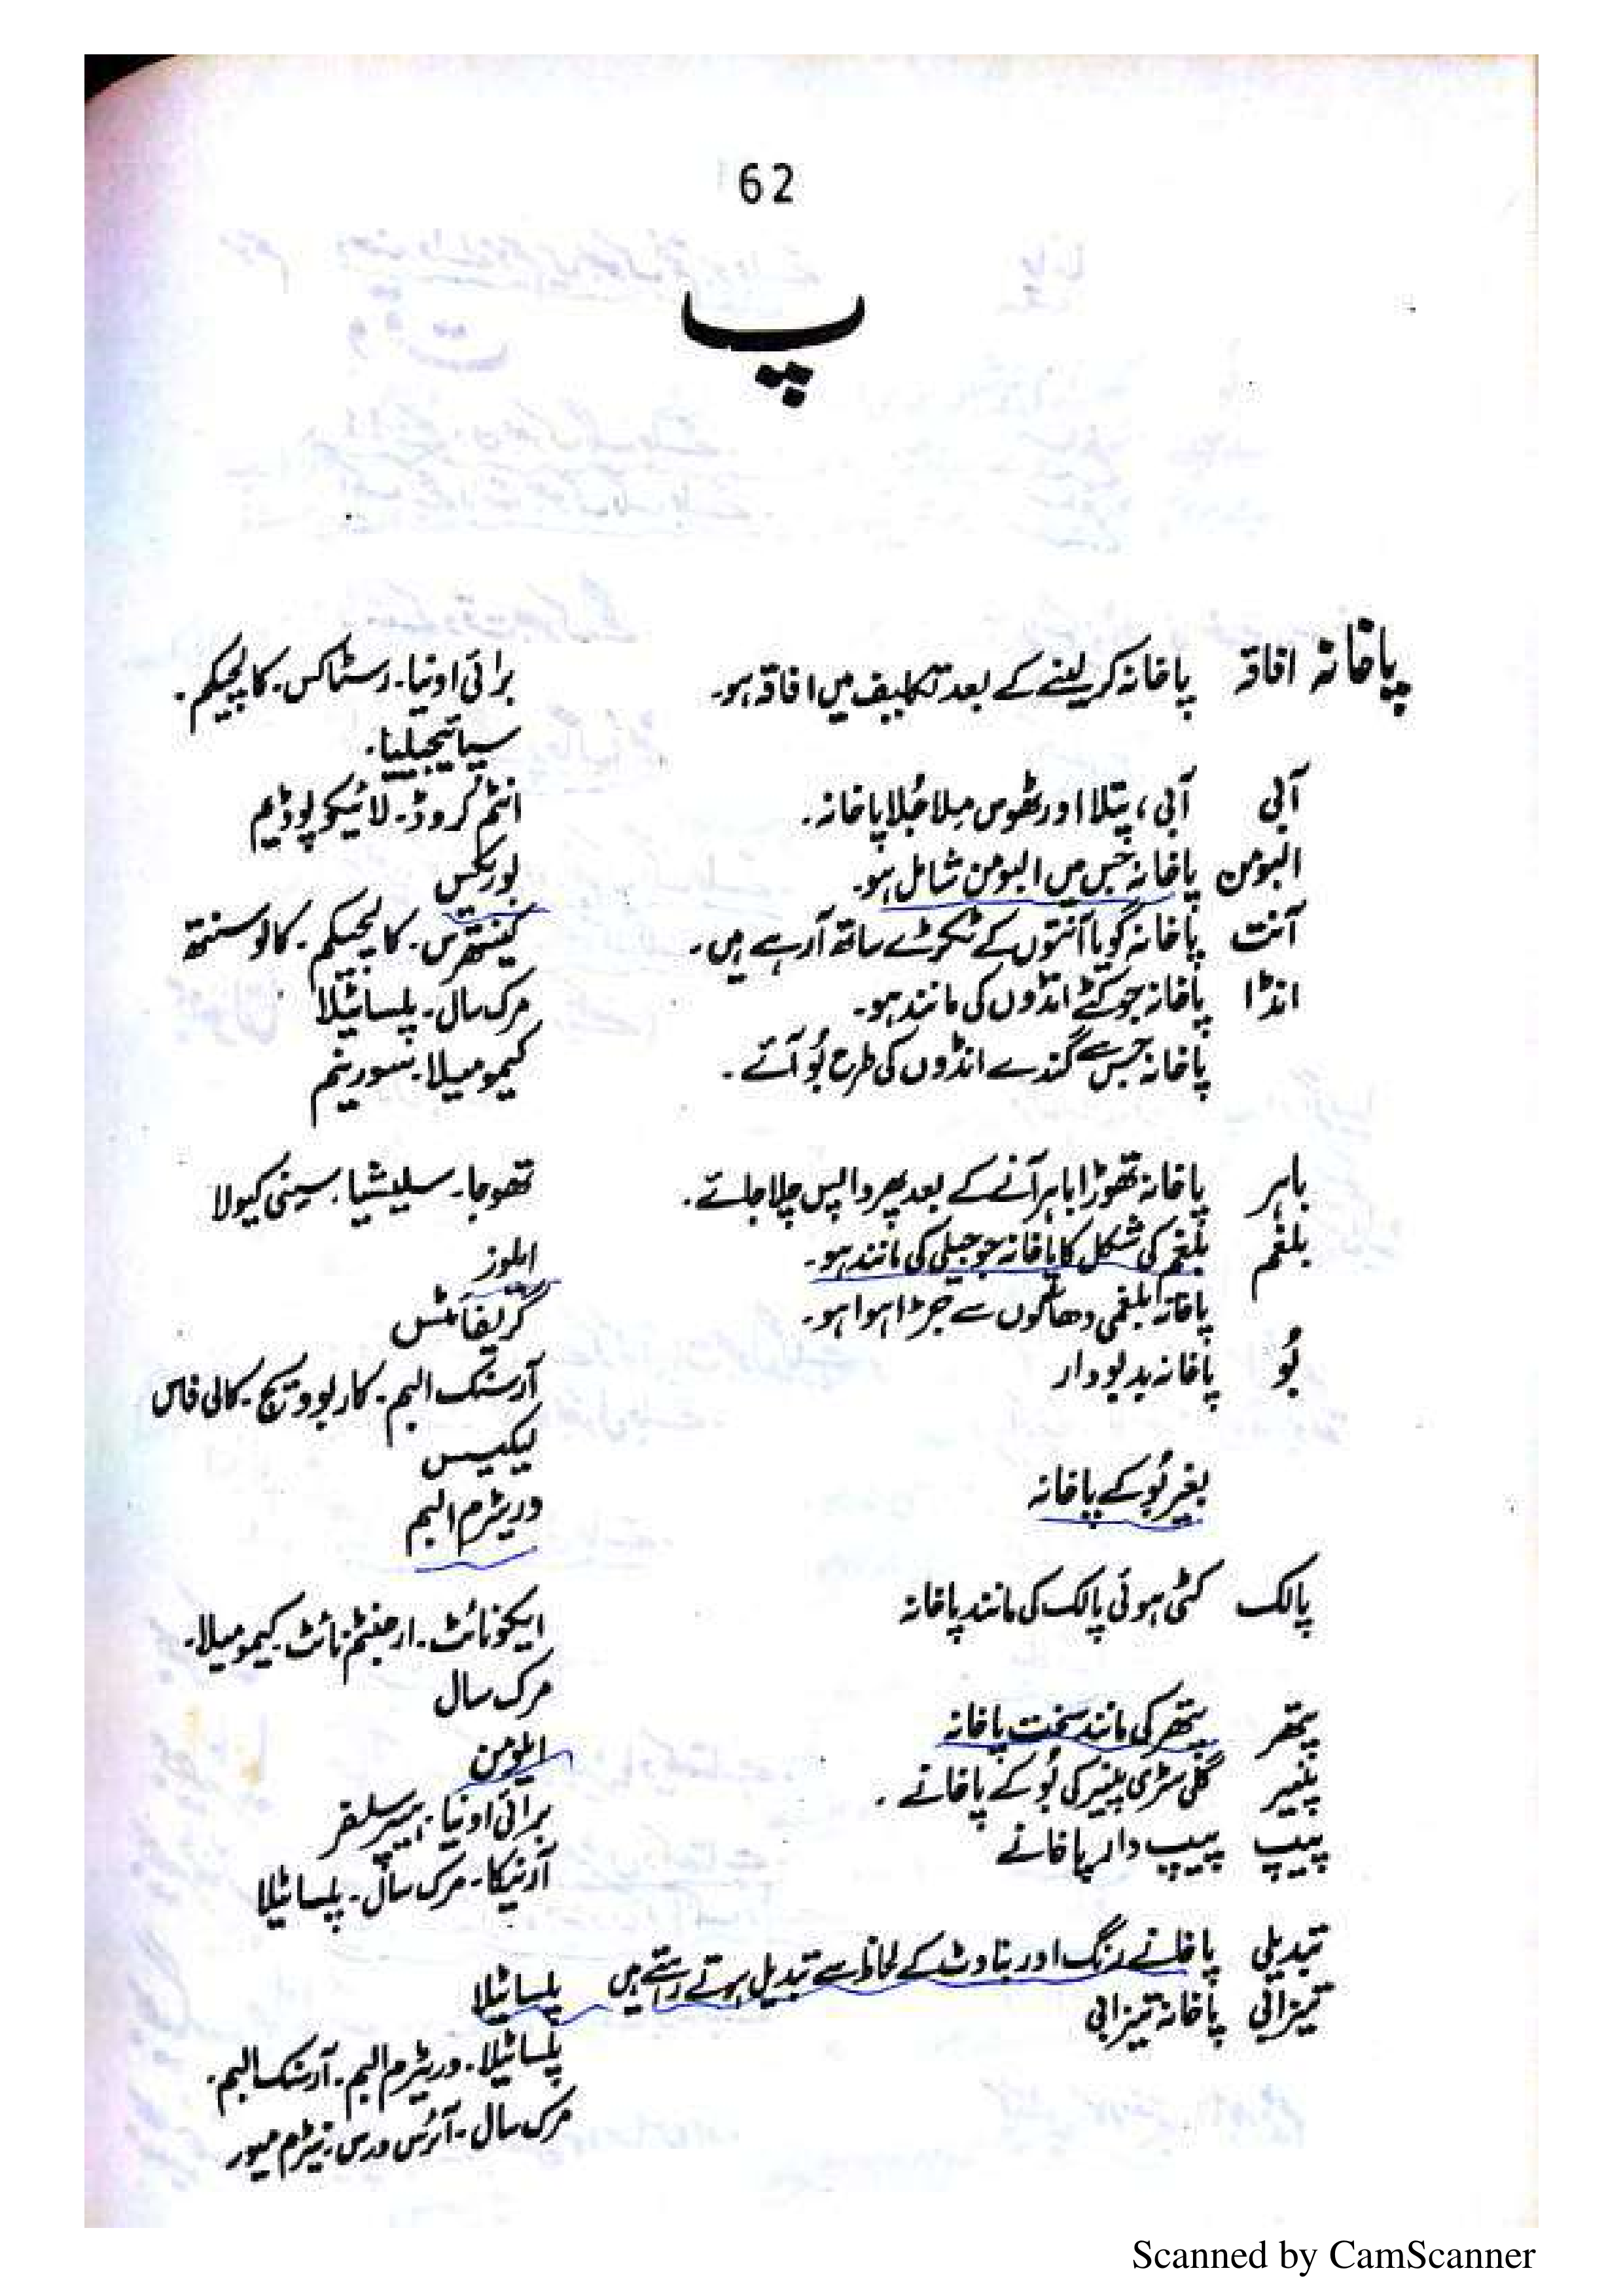 62
پ
پاخانہ افاقہ پاخانہ کر لینے کے بعد تکلیف میں افاقہ ہو۔ برائی اونیا۔ رسٹاکس۔ کالچیکم۔
سپائیجیلیا۔
آبی آبی، پتلا اور ٹھوس مِلا جُلا پاخانہ۔ انٹم کروڈ۔ لائیکو پوڈیم
البومن پاخانہ جس میں البومن شامل ہو۔ بوریکس
آنت پاخانہ گویا آنتوں کے ٹکڑے ساتھ آرہے ہیں۔ کینتھرس۔ کالچیکم۔ کالوسنتھ
انڈا پاخانہ جو کٹے انڈوں کی مانند ہو۔ مرک سال۔ پلساٹیلا
پاخانہ جس سے گندے انڈوں کی طرح بُو آئے۔ کیمومیلا۔ سورینم
باہر پاخانہ تھوڑا باہر آنے کے بعد پھر واپس چلا جائے۔ تھوجا۔ سلیشیا۔ سینی کیولا
بلغم بلغم کی شکل کا پاخانہ جو جیلی کی مانند ہو۔ ایلوز
پاخانہ بلغمی دھاگوں سے جڑا ہوا ہو۔ گریفائٹس
بُو پاخانہ بدبودار آرسنک البم۔ کاربوویج۔ کالی فاس
لیکیسس
بغیر بُو کے پاخانہ وریٹرم البم
پالک کٹی ہوئی پالک کی مانند پاخانہ ایکونائٹ۔ ارجنٹم نائٹ۔ کیمومیلا۔
مرک سال
پتھر پتھر کی مانند سخت پاخانہ ایلومن
پنیر گلی سڑی پنیر کی بُو کے پاخانے۔ برائی اونیا۔ ہیپر سلفر
پیپ پیپ دار پاخانے آرنیکا۔ مرک سال۔ پلساٹیلا
تبدیلی پاخانے رنگ اور بناوٹ کے لحاظ سے تبدیل ہوتے رہتے ہیں پلساٹیلا
تیزابی پاخانہ تیزابی پلساٹیلا۔ وریٹرم البم۔ آرسنک البم۔
مرک سال۔ آئرس ورس۔ نیٹرم میور
Scanned by CamScanner